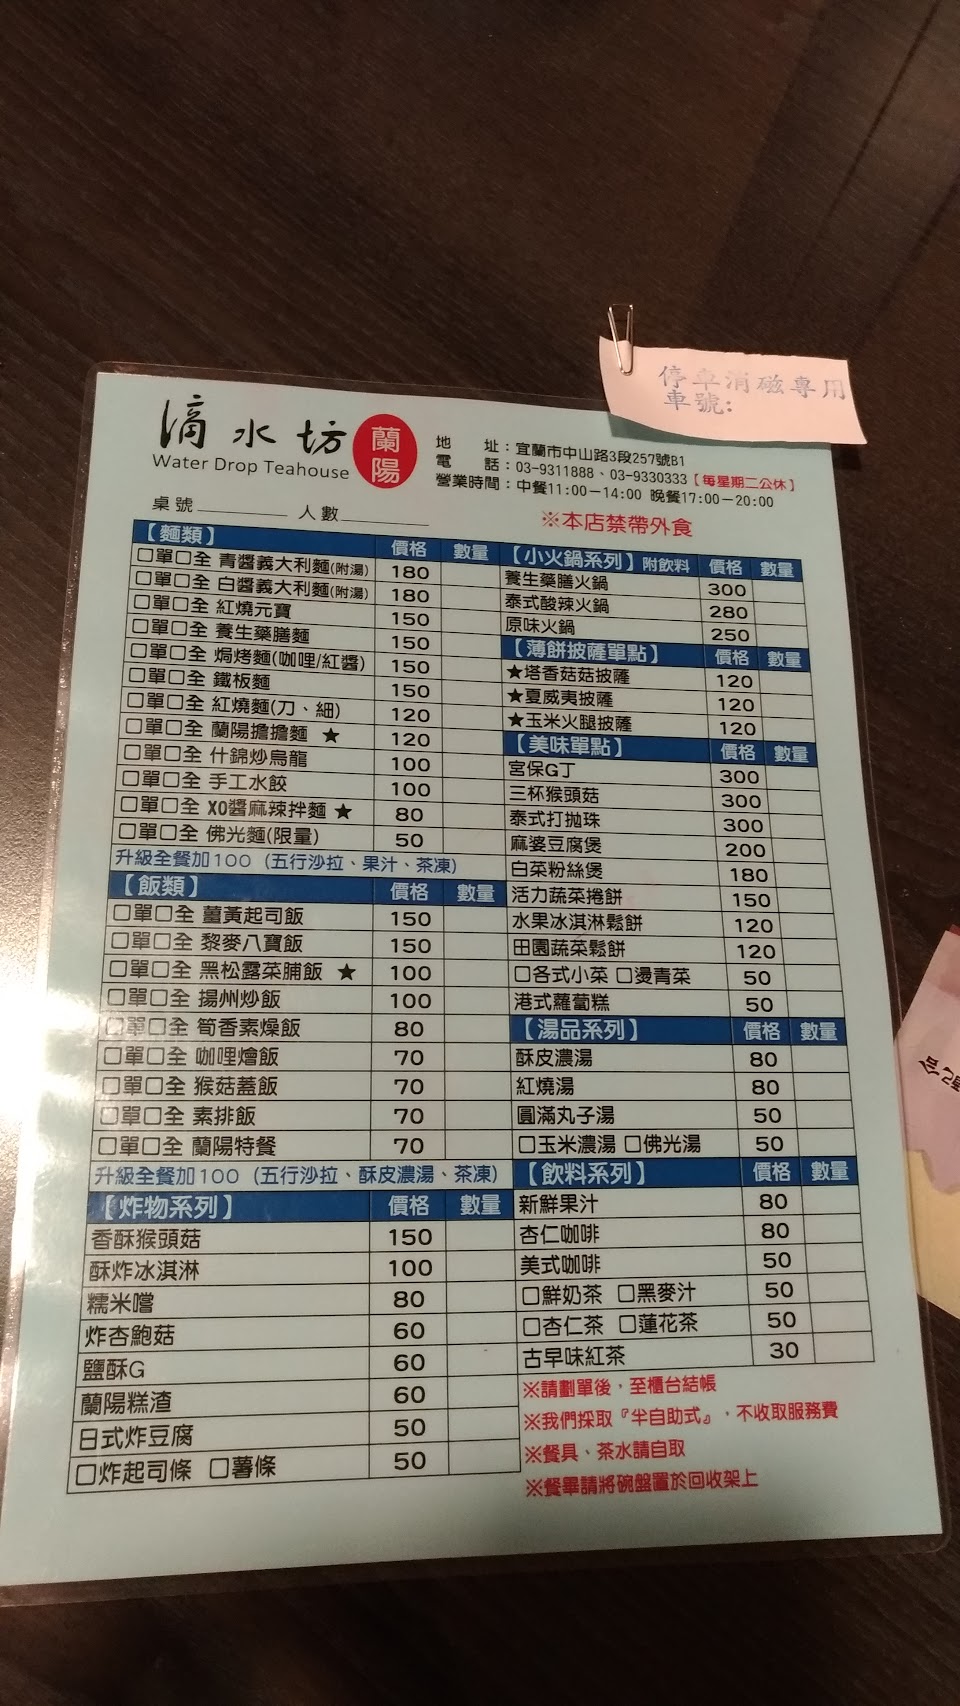 停車消磁專用
車號:
滴水坊 蘭陽
Water Drop Teahouse
地 址：宜蘭市中山路3段257號B1
電 話：03-9311888、03-9330333【每星期二公休】
營業時間：中餐11:00－14:00 晚餐17:00－20:00
桌號________ 人數________
※本店禁帶外食
【麵類】 價格 數量
□單□全 青醬義大利麵(附湯) 180
□單□全 白醬義大利麵(附湯) 180
□單□全 紅燒元寶 150
□單□全 養生藥膳麵 150
□單□全 焗烤麵(咖哩/紅醬) 150
□單□全 鐵板麵 150
□單□全 紅燒麵(刀、細) 120
□單□全 蘭陽擔擔麵 ★ 120
□單□全 什錦炒烏龍 100
□單□全 手工水餃 100
□單□全 XO醬麻辣拌麵 ★ 80
□單□全 佛光麵(限量) 50
升級全餐加100（五行沙拉、果汁、茶凍）
【飯類】 價格 數量
□單□全 薑黃起司飯 150
□單□全 黎麥八寶飯 150
□單□全 黑松露菜脯飯 ★ 100
□單□全 揚州炒飯 100
□單□全 筍香素燥飯 80
□單□全 咖哩燴飯 70
□單□全 猴菇蓋飯 70
□單□全 素排飯 70
□單□全 蘭陽特餐 70
升級全餐加100（五行沙拉、酥皮濃湯、茶凍）
【炸物系列】 價格 數量
香酥猴頭菇 150
酥炸冰淇淋 100
糯米嚐 80
炸杏鮑菇 60
鹽酥G 60
蘭陽糕渣 60
日式炸豆腐 50
□炸起司條 □薯條 50
【小火鍋系列】附飲料 價格 數量
養生藥膳火鍋 300
泰式酸辣火鍋 280
原味火鍋 250
【薄餅披薩單點】 價格 數量
★塔香菇菇披薩 120
★夏威夷披薩 120
★玉米火腿披薩 120
【美味單點】 價格 數量
宮保G丁 300
三杯猴頭菇 300
泰式打拋珠 300
麻婆豆腐煲 200
白菜粉絲煲 180
活力蔬菜捲餅 150
水果冰淇淋鬆餅 120
田園蔬菜鬆餅 120
□各式小菜 □燙青菜 50
港式蘿蔔糕 50
【湯品系列】 價格 數量
酥皮濃湯 80
紅燒湯 80
圓滿丸子湯 50
□玉米濃湯 □佛光湯 50
【飲料系列】 價格 數量
新鮮果汁 80
杏仁咖啡 80
美式咖啡 50
□鮮奶茶 □黑麥汁 50
□杏仁茶 □蓮花茶 50
古早味紅茶 30
※請劃單後，至櫃台結帳
※我們採取『半自助式』，不收取服務費
※餐具、茶水請自取
※餐畢請將碗盤置於回收架上